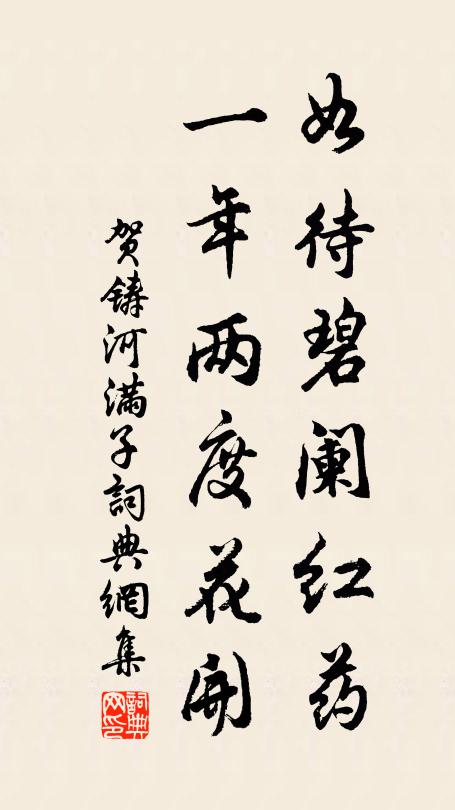 如待碧阑红药
一年两度花开
贺铸河满子詞典網集
詞典网印